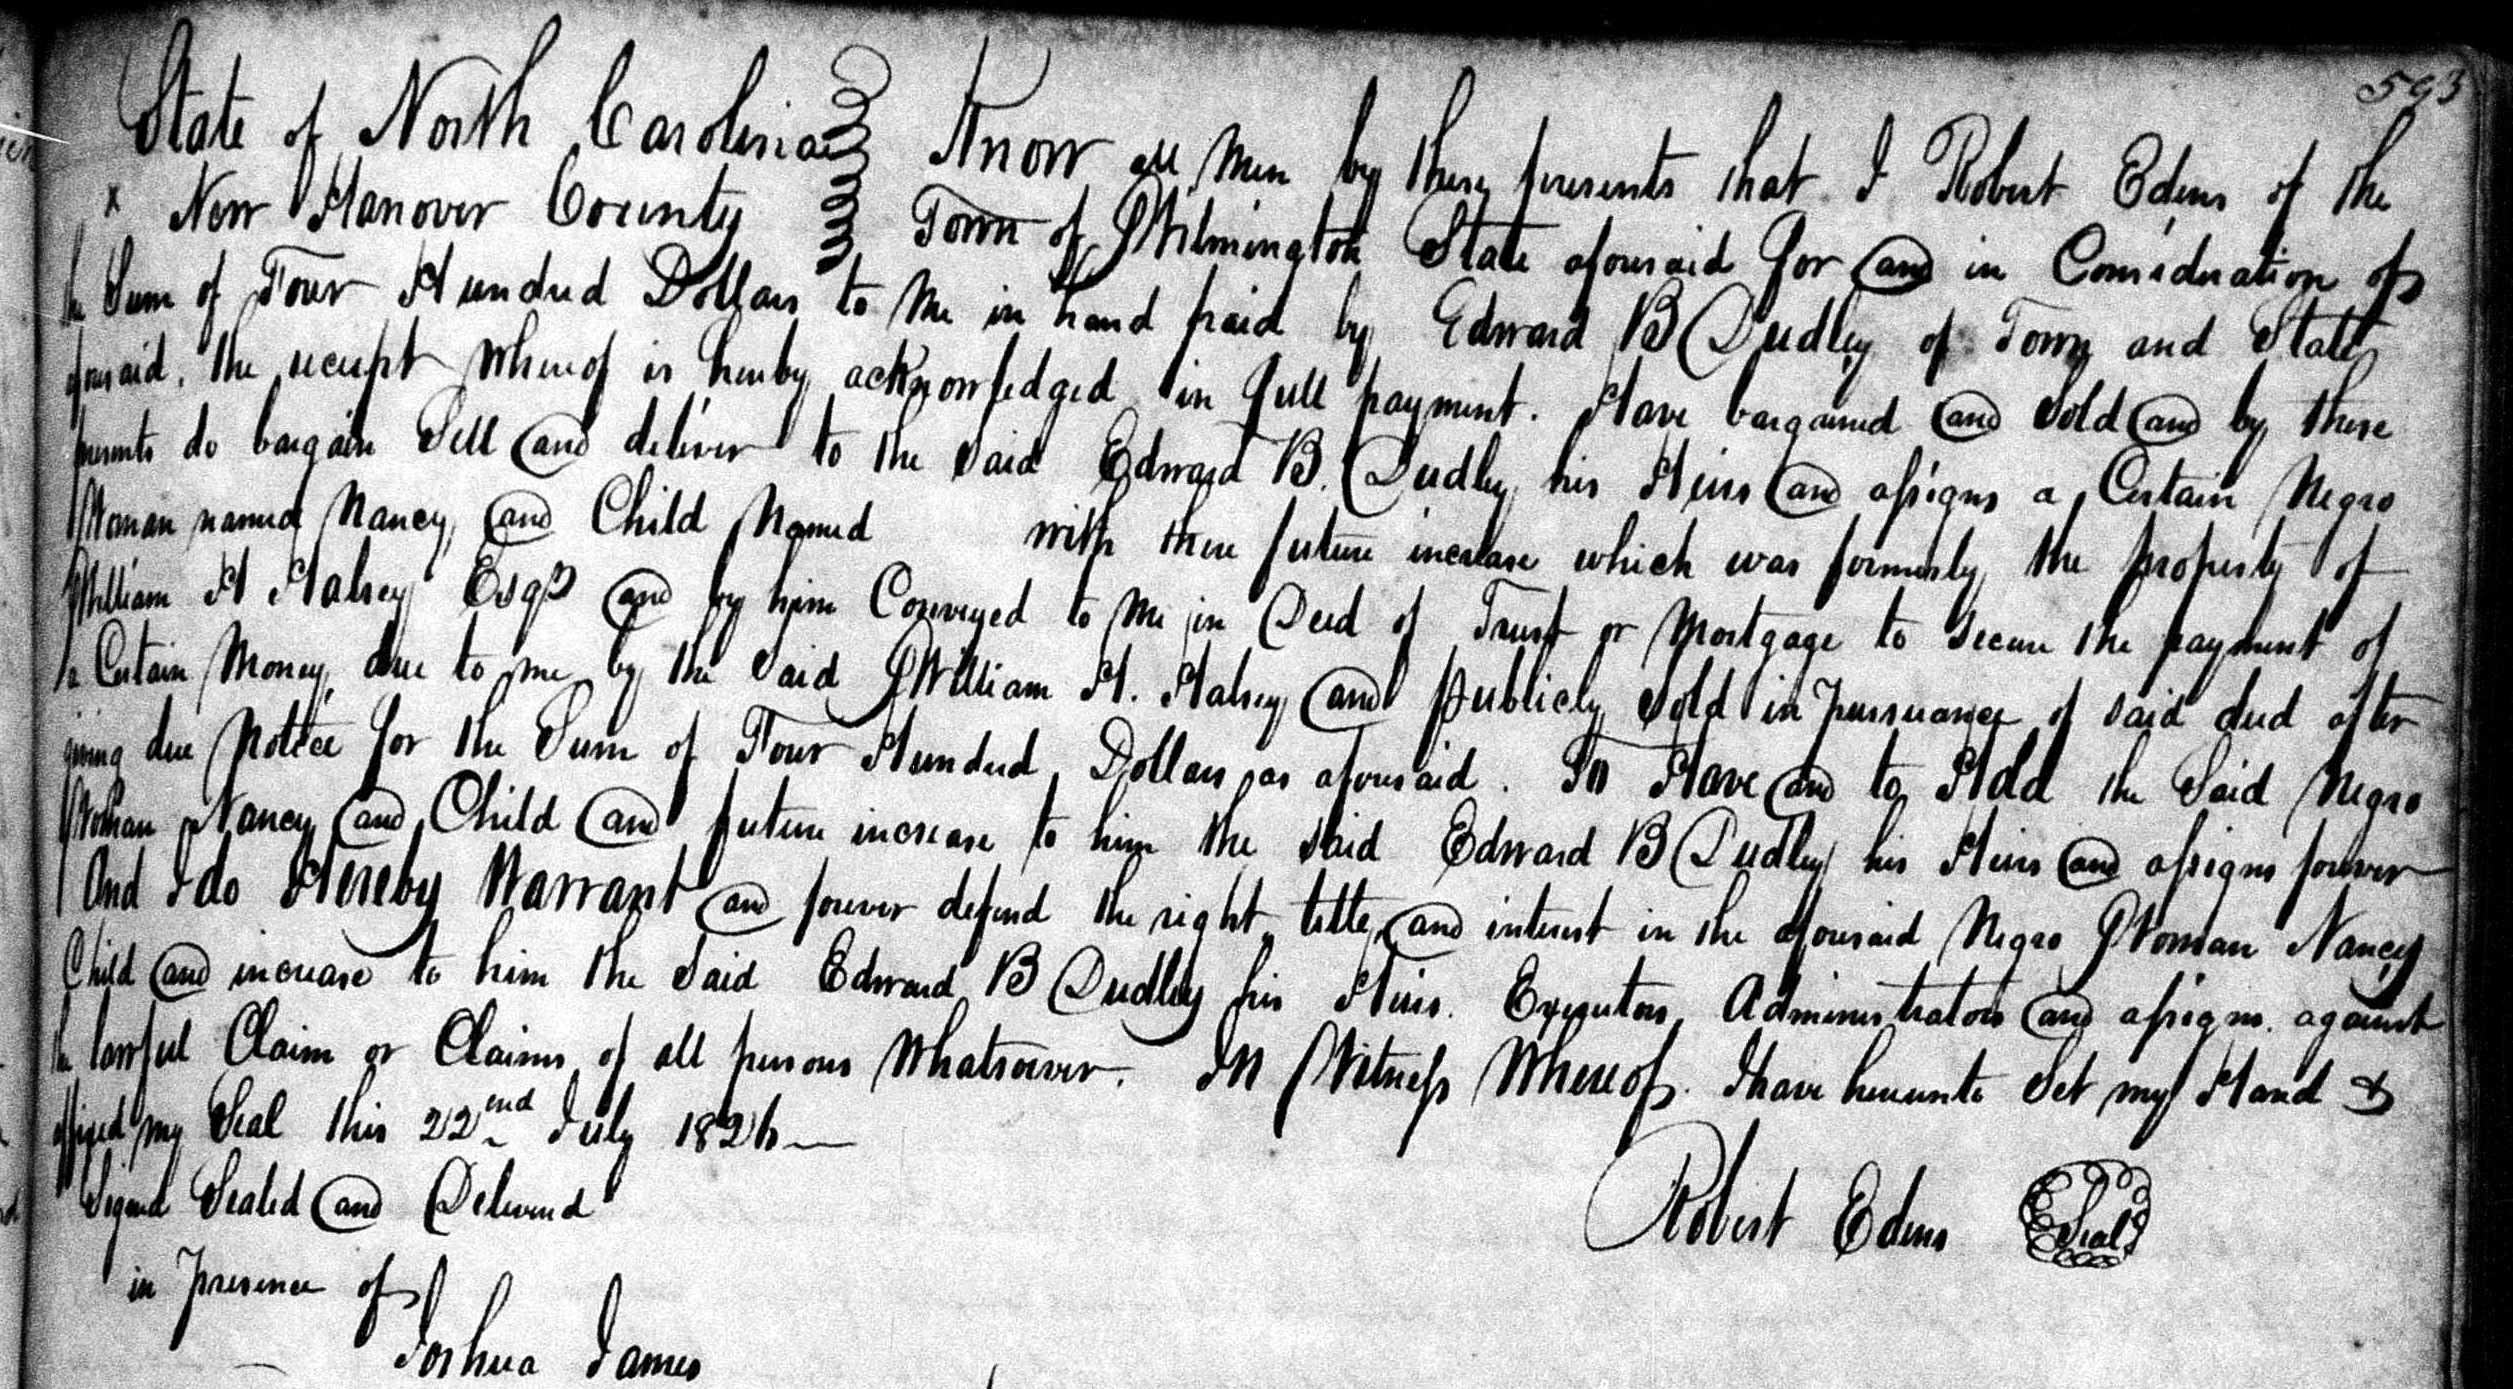 593
State of North Carolina Know all Men by these presents that I Robert Edens of the
x New Hanover County Town of Wilmington State aforesaid for and in Consideration of
the Sum of Four Hundred Dollars to Me in hand paid by Edward B Dudley of Town and State
aforesaid, the receipt Whereof is hereby acknowledged in full payment. Have bargained and Sold and by these
presents do bargain Sell and deliver to the Said Edward B. Dudley his Heirs and assigns a Certain Negro
Woman named Nancy, and Child Named with there future increase which was formerly the property of
William H Halsey Esqr and by him Conveyed to Me in Deed of Trust or Mortgage to Secure the payment of
a Certain Money due to me by the Said William H. Halsey and publicly Sold in pursuance of said deed after
giving due Notice for the Sum of Four Hundred Dollars as aforesaid. To Have and to Hold the Said Negro
Woman Nancy and Child and future increase to him the said Edward B Dudley his Heirs and assigns forever
And I do Hereby Warrant and forever defend the right title and interest in the aforesaid Negro Woman Nancy
Child and increase to him the Said Edward B Dudley his Heirs. Executors Administrators and assigns. against
the lawful Claim or Claims of all persons Whatsoever. In Witness Whereof. I have hereunto Set my Hand &
affixed my Seal this 22nd July 182
Signed Sealed and Delivered
Robert Edens Seal
in presence of
Joshua James